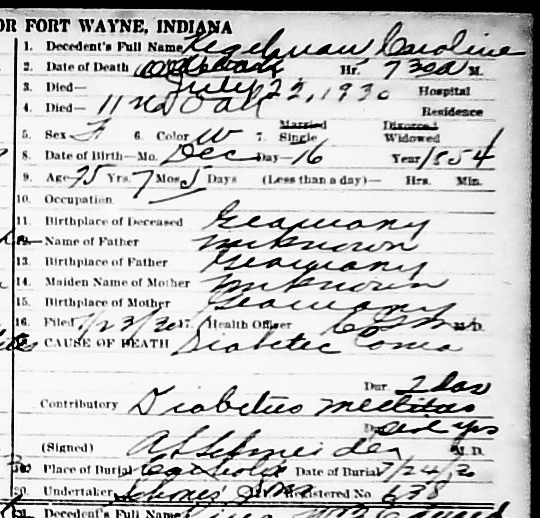 OR FORT WAYNE, INDIANA
1. Decedent's Full Name Kegelman Caroline
2. Date of Death Hr. 7 30 a M.
3. Died— July 22, 1930 Hospital
4. Died— Oak Residence
5. Sex F 6. Color W 7. Married Single Divorced Widowed
8. Date of Birth—Mo. Dec Day—16 Year 1854
9. Age 75 Yrs. 7 Mos 5 Days (Less than a day)— Hrs. Min.
10. Occupation
11. Birthplace of Deceased Germany
12. Name of Father unknown
13. Birthplace of Father Germany
14. Maiden Name of Mother unknown
15. Birthplace of Mother Germany
16. Filed 7/23/30 17. Health Officer M.D.
CAUSE OF DEATH Diabetic Coma
Dur. 2 Day
Contributory Diabetes Mellitus
yrs
(Signed) A Schneider M. D.
Place of Burial Date of Burial 7/24/30
20. Undertaker Schone & Sons Registered No 638
Decedent's Full Name